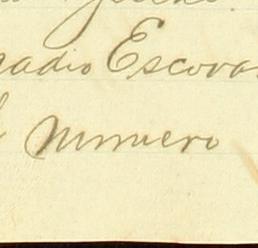 adio Escova
l numero